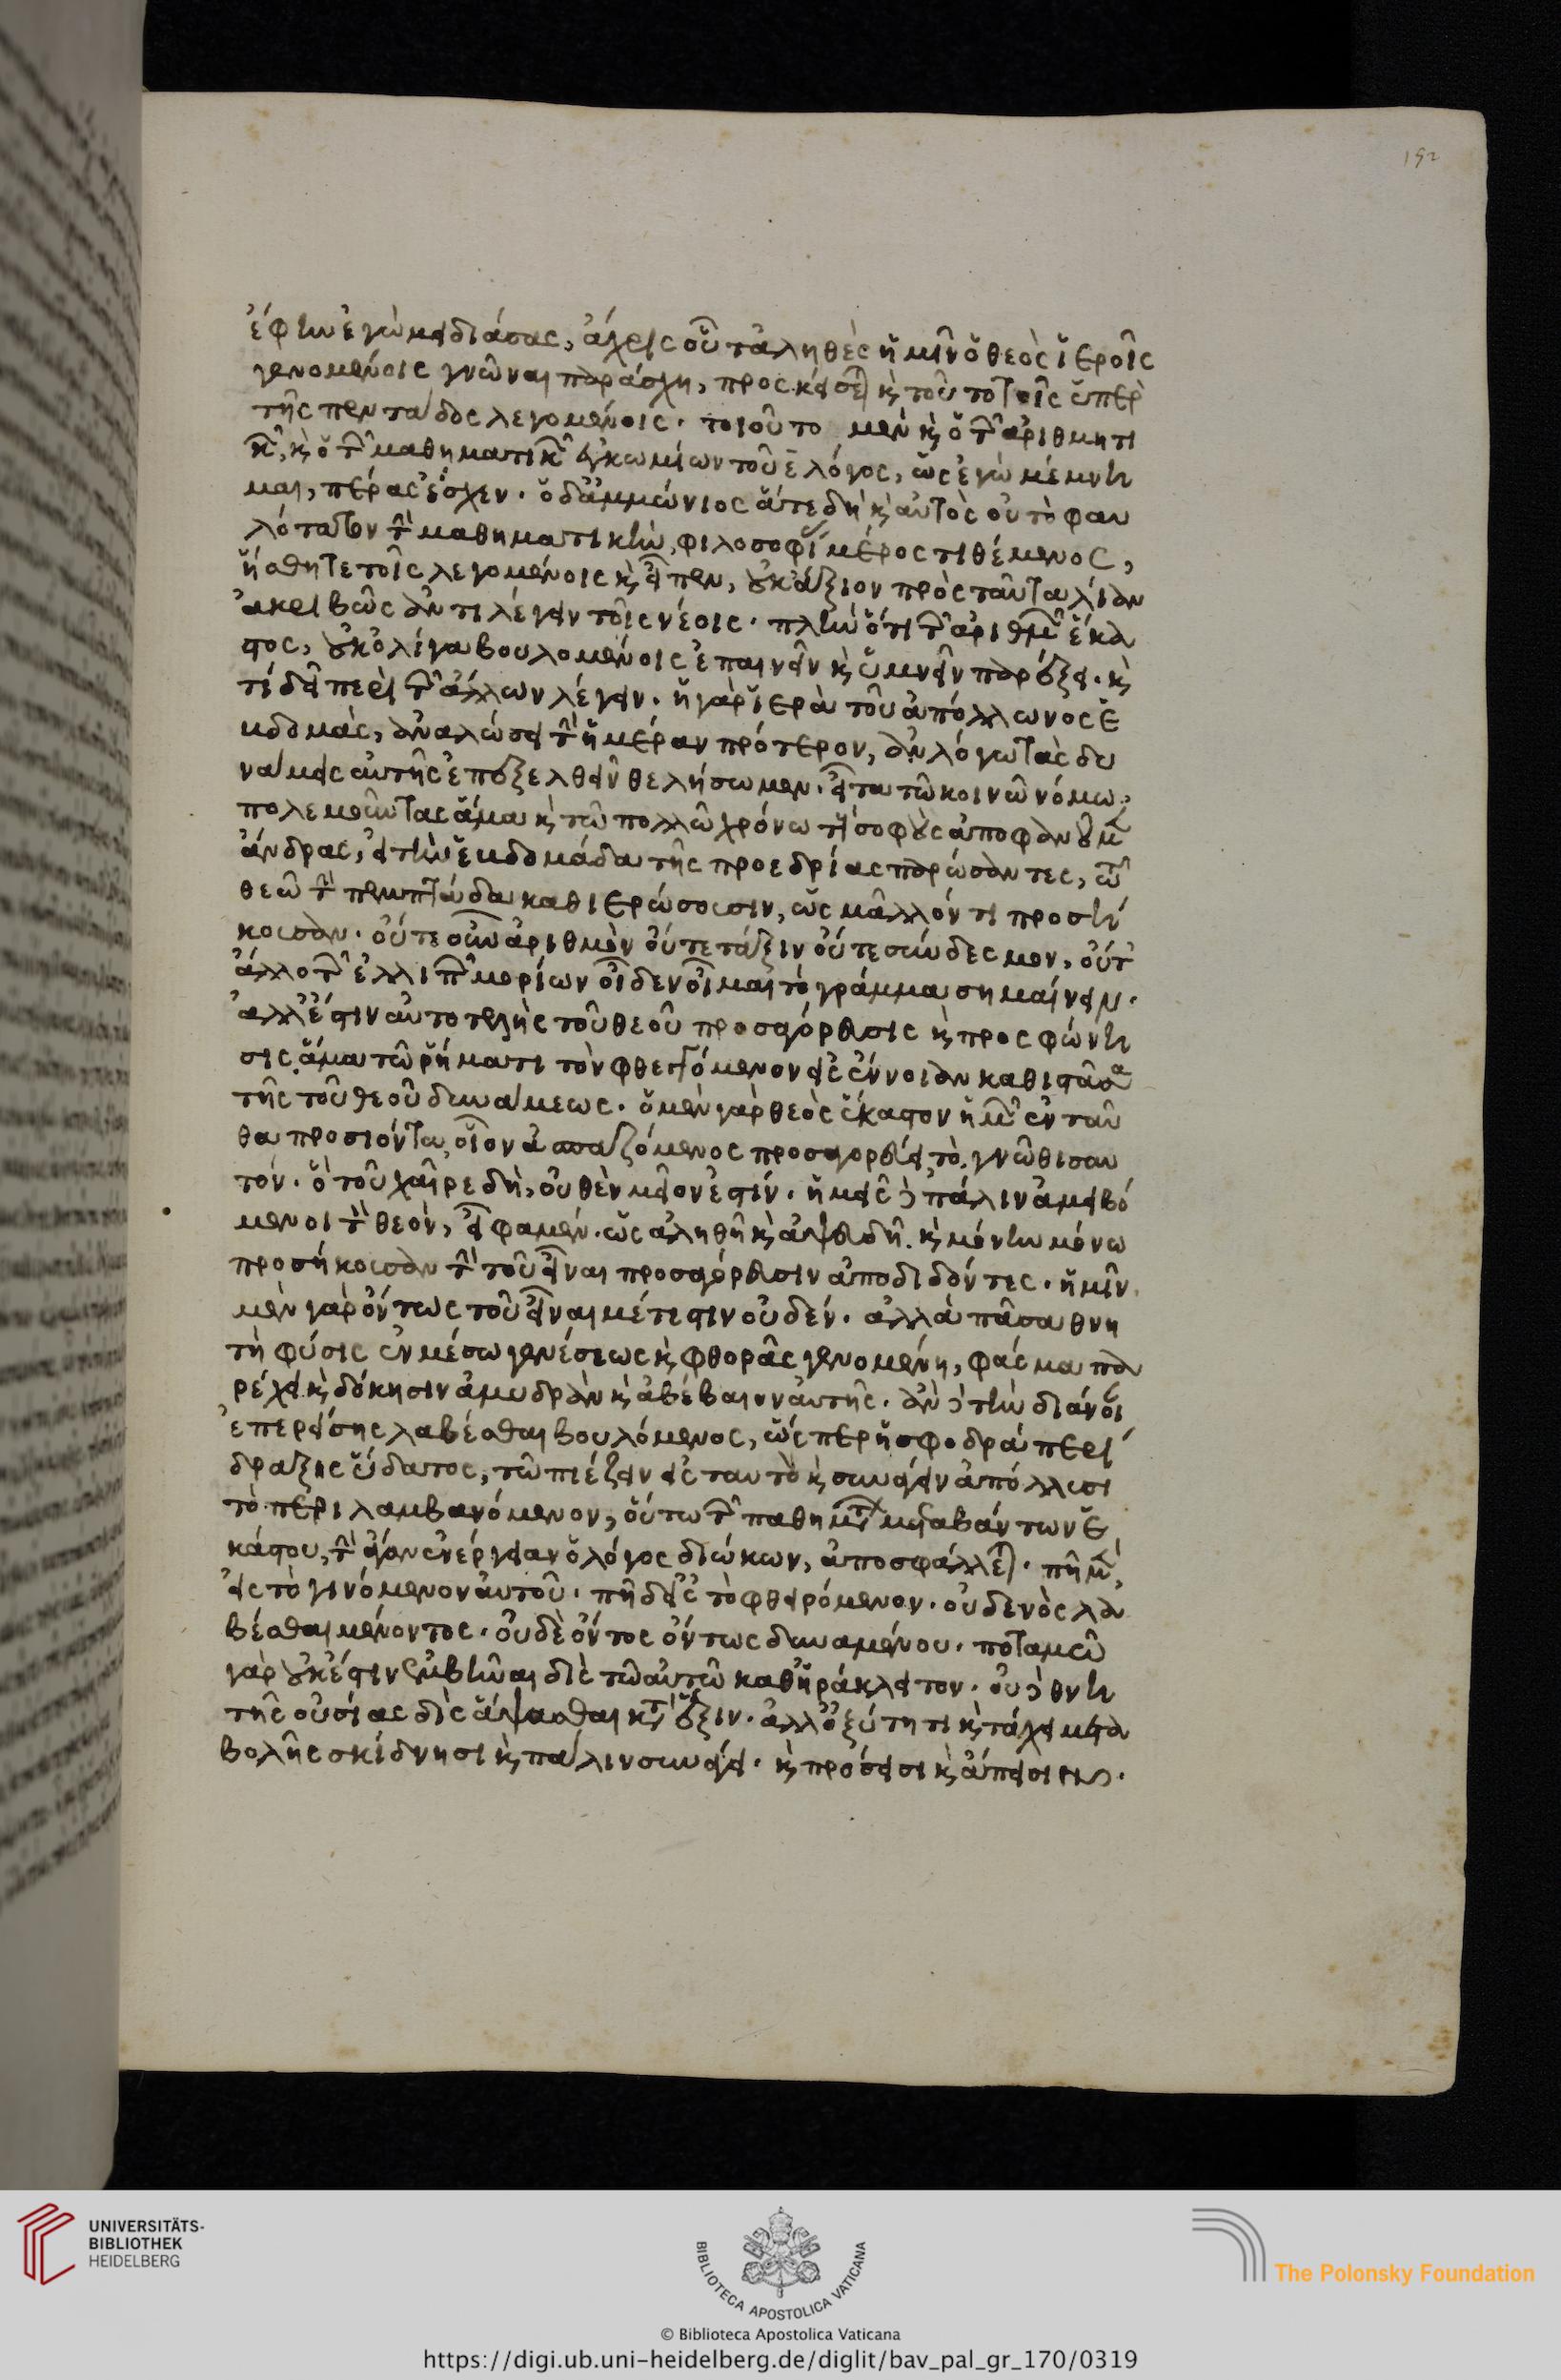 ἔφην ἐγὼ μειδιάσας, ἄχρις οὗ τἀληθὲς ἡμῖν ὁ θεὸς ἱεροῖς
γενομένοις γνῶναι παράσχη, προσκείσεται καὶ τοῦτο τοῖς ὑπὲρ
τῆς πεντάδος λεγομένοις. τοιοῦτο μὲν καὶ ὁ τῶν ἀριθμητι
κῶν, καὶ ὁ τῶν μαθηματικῶν ἐγκωμίων τοῦ ε λόγος, ὡς ἐγὼ μέμνη
μαι, πέρας ἔσχεν. ὁ δ' ἀμμώνιος ἅτε δὴ καὶ αὐτὸς οὐ τὸ φαυ
λότατον τὴν μαθηματικὴν φιλοσοφίας μέρος τιθέμενος,
ἥσθη τε τοῖς λεγομένοις καὶ εἶπεν, οὐκ ἄξιον πρὸς ταῦτα λίαν
ἀκριβῶς ἀντιλέγειν τοῖς νέοις. πλὴν ὅτι τῶν ἀριθμῶν ἕκα
στος, οὐκ ὀλίγα βουλομένοις ἐπαινεῖν καὶ ὑμνεῖν παρέξει. καὶ
τί δεῖ περὶ τῶν ἄλλων λέγειν. ἡ γὰρ ἱερὰ τοῦ ἀπόλλωνος ἑ
βδομὰς, ἀναλώσει τὴν ἡμέραν πρότερον, ἂν λόγω τὰς δυ
νάμεις αὐτῆς ἐπεξελθεῖν θελήσωμεν. εἶτα τῶ κοινῶ νόμω
πολεμοῦντας ἅμα καὶ τῶ πολλῶ χρόνω τοὺς σοφοὺς ἀποφανοῦμεν
ἄνδρας, εἰ τὴν ἑβδομάδα τῆς προεδρίας παρώσαντες, τῶ
θεῶ τὴν πεμπτάδα καθιερώσουσιν, ὡς μᾶλλόν τι προσή
κουσαν. οὔτε οὖν ἀριθμὸν οὔτε τάξιν οὔτε σύνδεσμον, οὔτ'
ἄλλο τῶν ἐλλιπῶν μορίων οὐδὲν οἶμαι τὸ γράμμα σημαίνειν.
ἀλλ' ἔστιν αὐτοτελὴς τοῦ θεοῦ προσαγόρευσις καὶ προσφώνη
σις ἅμα τῶ ῥήματι τὸν φθεγγόμενον εἰς ἔννοιαν καθιστᾶσα
τῆς τοῦ θεοῦ δυνάμεως. ὁ μὲν γὰρ θεὸς ἕκαστον ἡμῶν ἐνταῦ
θα προσιόντα, οἷον ἀσπαζόμενος προσαγορεύει, τὸ γνῶθι σαυ
τόν. ὃ τοῦ χαῖρε δὴ, οὐθὲν μεῖον ἐστίν. ἡμεῖς δὲ πάλιν ἀμειβό
μενοι τὸν θεὸν, εἶ φαμέν. ὡς ἀληθῆ καὶ ἀψευδῆ. καὶ μόνην μόνω
προσήκουσαν τὴν τοῦ εἶναι προσαγόρευσιν ἀποδιδόντες. ἡμῖν
μὲν γὰρ ὄντως τοῦ εἶναι μέτεστιν οὐδέν. ἀλλὰ πᾶσα θνη
τὴ φύσις ἐν μέσω γενέσεως καὶ φθορᾶς γενομένη, φάσμα πα
ρέχει καὶ δόκησιν ἀμυδρὰν καὶ ἀβέβαιον αὐτῆς. ἂν δὲ τὴν διάνοιαν
ἐπερείσης λαβέσθαι βουλόμενος, ὥσπερ ἡ σφοδρὰ περί
δραξις ὕδατος, τῶ πιέζειν εἰς ταυτὸ καὶ συνάγειν ἀπόλλυσι
τὸ περιλαμβανόμενον, οὕτω τῶν παθημάτων μεταβάντων ἑ
κάστου, τὴν ἄγαν ἐνέργειαν ὁ λόγος διώκων, ἀποσφάλλεται. πῆ μὲν
εἰς τὸ γινόμενον αὐτοῦ. πῆ δ' εἰς τὸ φθειρόμενον. οὐδενὸς λα
βέσθαι μένοντος. οὐδὲ ὄντος ὄντως δυναμένου. ποταμῶ
γὰρ οὐκ ἔστιν ἐμβῆναι δὶς τῶ αὐτῶ καθ' ἡράκλειτον. οὐδὲ θνη
τῆς οὐσίας δὶς ἅψασθαι κατὰ ἕξιν. ἀλλ' ὀξύτητι καὶ τάχει μετα
βολῆς σκίδνησι καὶ πάλιν συνάγει. καὶ πρόσεισι καὶ ἄπεισι.
192
UNIVERSITÄTS-
BIBLIOTHEK
HEIDELBERG
BIBLIOTECA APOSTOLICA VATICANA
The Polonsky Foundation
© Biblioteca Apostolica Vaticana
https://digi.ub.uni-heidelberg.de/diglit/bav_pal_gr_170/0319